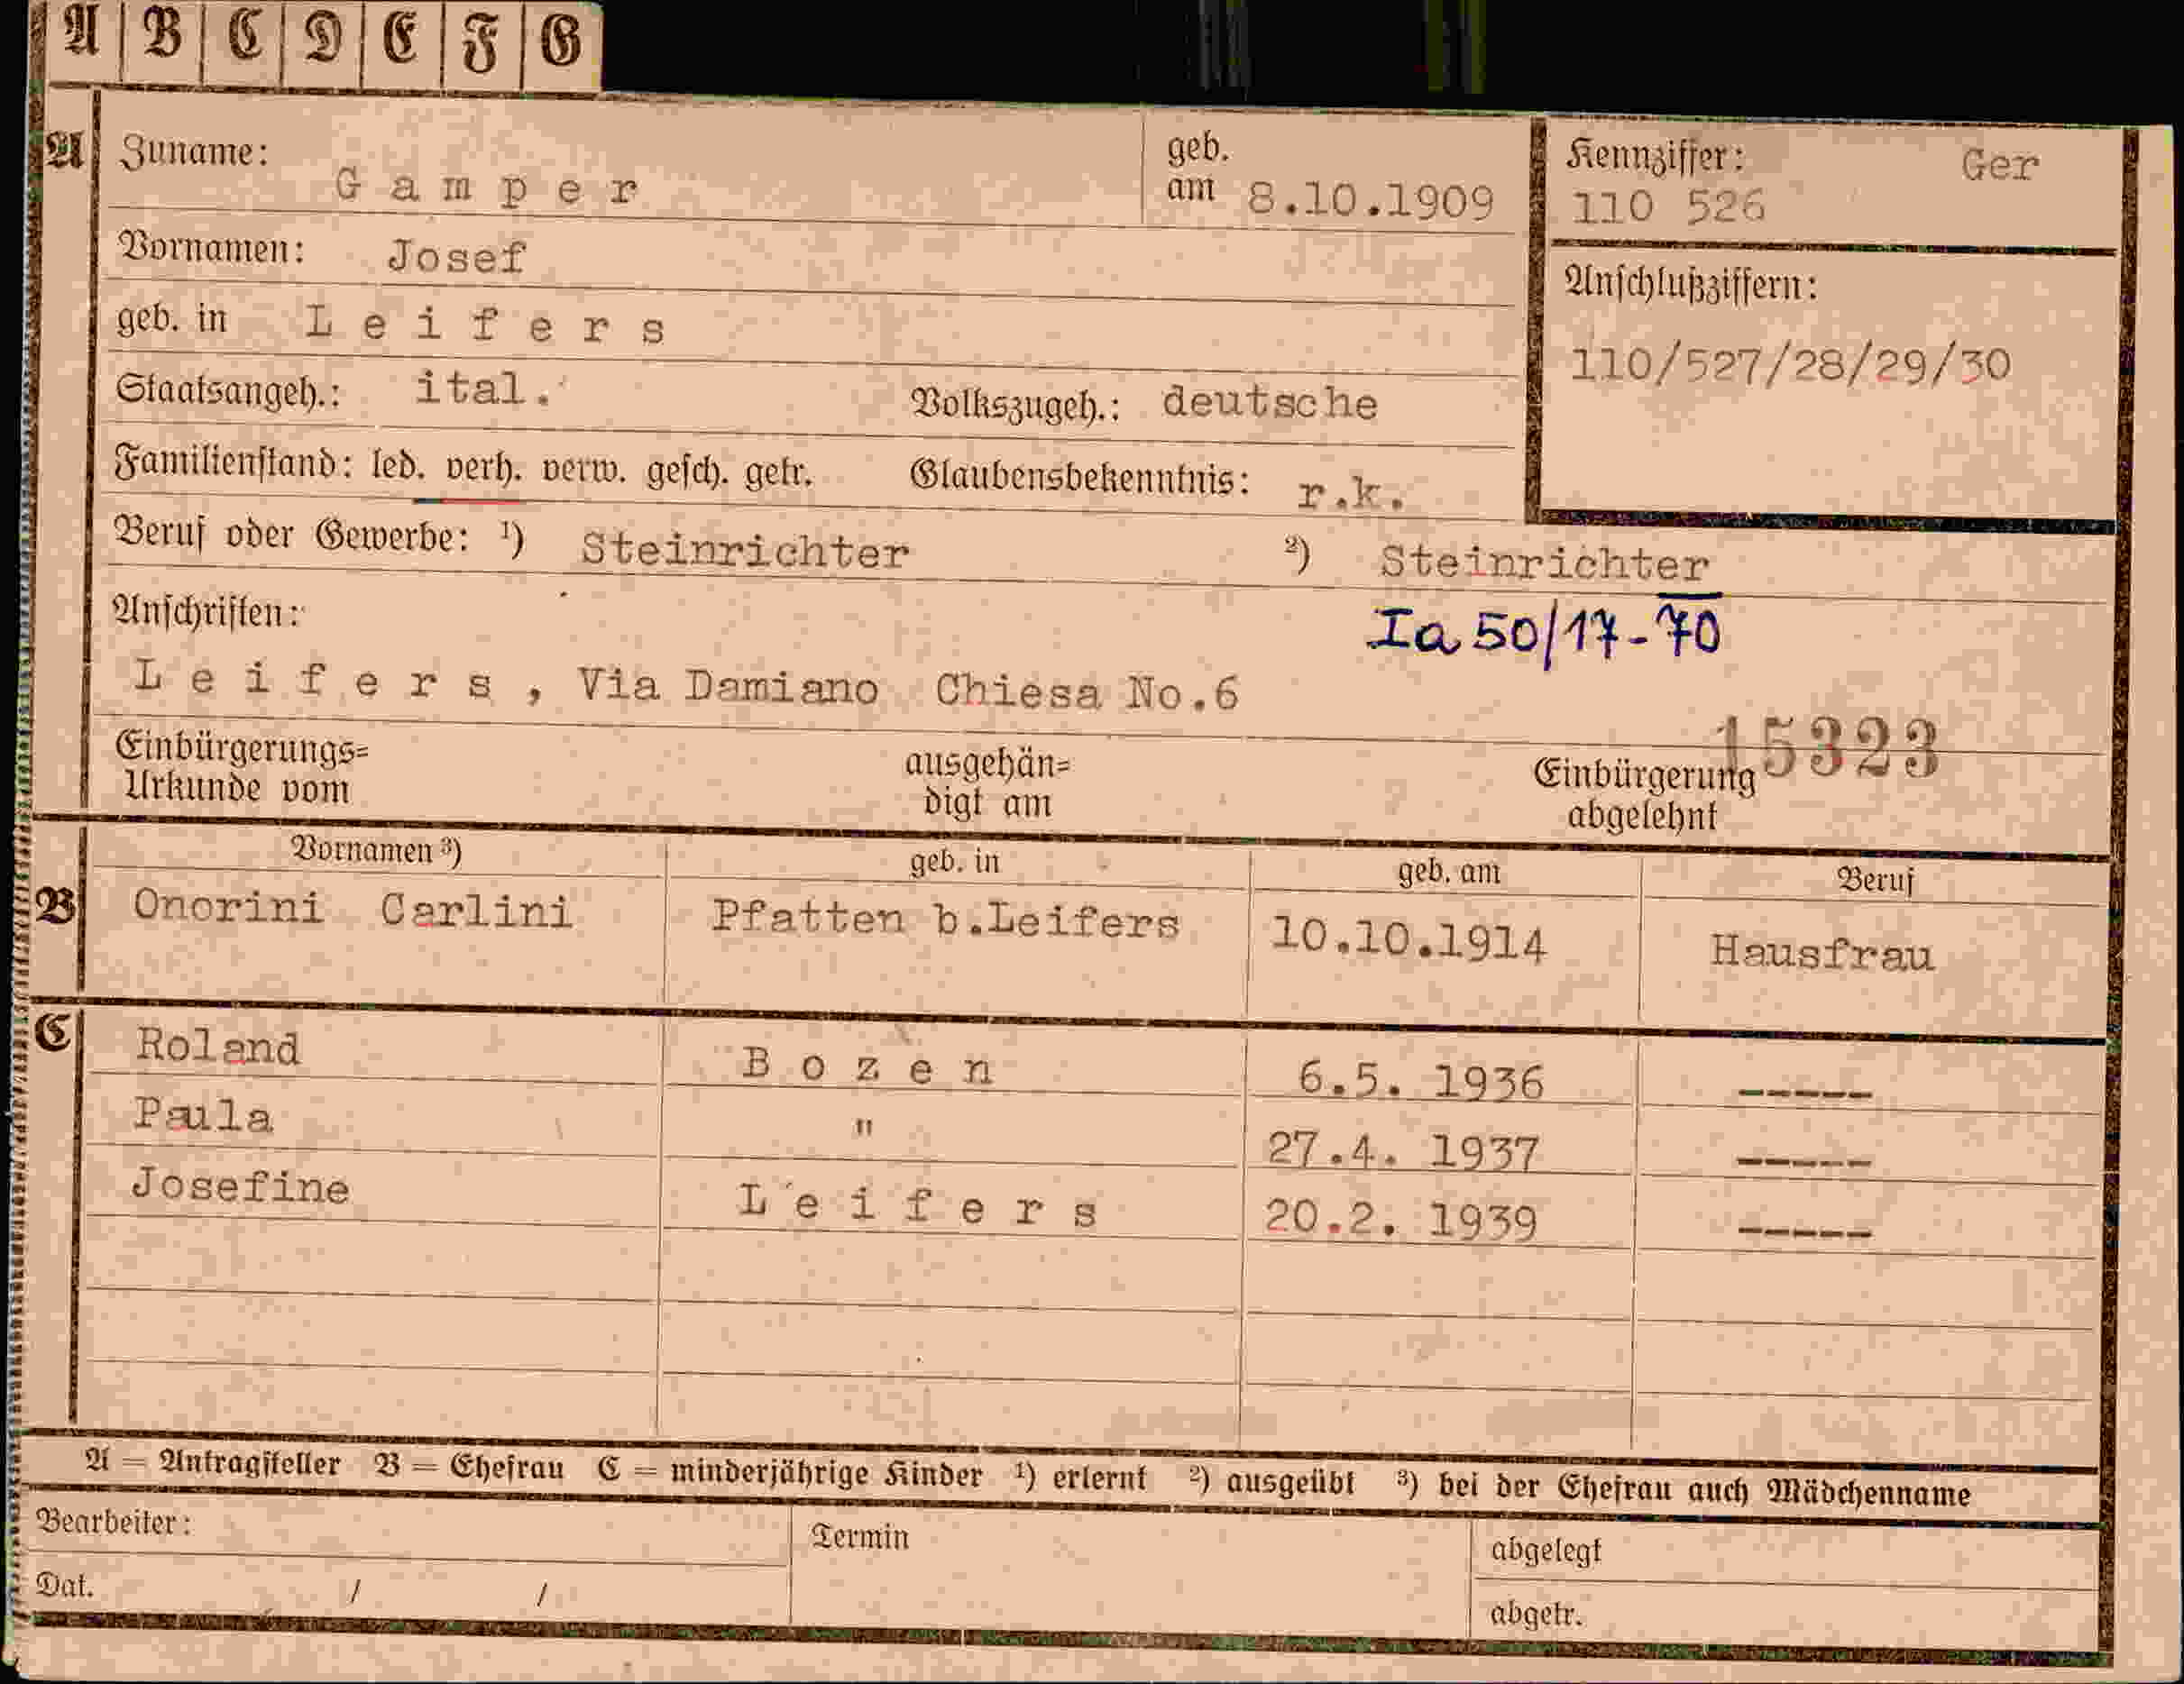 A B C D E F G
A Zuname: Gamper geb. am 8.10.1909 Kennziffer: Ger
110 526
Vornamen: Josef
Anschlußziffern:
geb. in Leifers
110/527/28/29/30
Staatsangeh.: ital. Volkszugeh.: deutsche
Familienstand: led. verh. verw. gesch. getr. Glaubensbekenntnis: r.k.
Beruf oder Gewerbe: ¹) Steinrichter ²) Steinrichter
Anschriften: Ia 50/17-70
Leifers, Via Damiano Chiesa No.6
15323
Einbürgerungs= ausgehän= Einbürgerung
Urkunde vom digt am abgelehnt
Vornamen ³) geb. in geb. am Beruf
B Onorini Carlini Pfatten b.Leifers 10.10.1914 Hausfrau
C Roland Bozen 6.5. 1936 -----
Paula " 27.4. 1937 -----
Josefine Leifers 20.2. 1939 -----
A = Antragsteller B = Ehefrau C = minderjährige Kinder ¹) erlernt ²) ausgeübt ³) bei der Ehefrau auch Mädchenname
Bearbeiter: Termin abgelegt
Dat. / / abgetr.